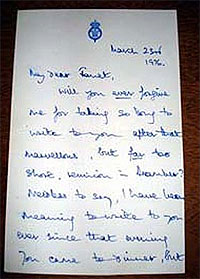 March 23rd
1976.
My dear Janet,
Will you ever forgive
me for taking so long to
write to you after that
marvellous, but far too
short, reunion in December?
Needless to say, I have been
meaning to write to you
ever since that evening
you came to dinner, but